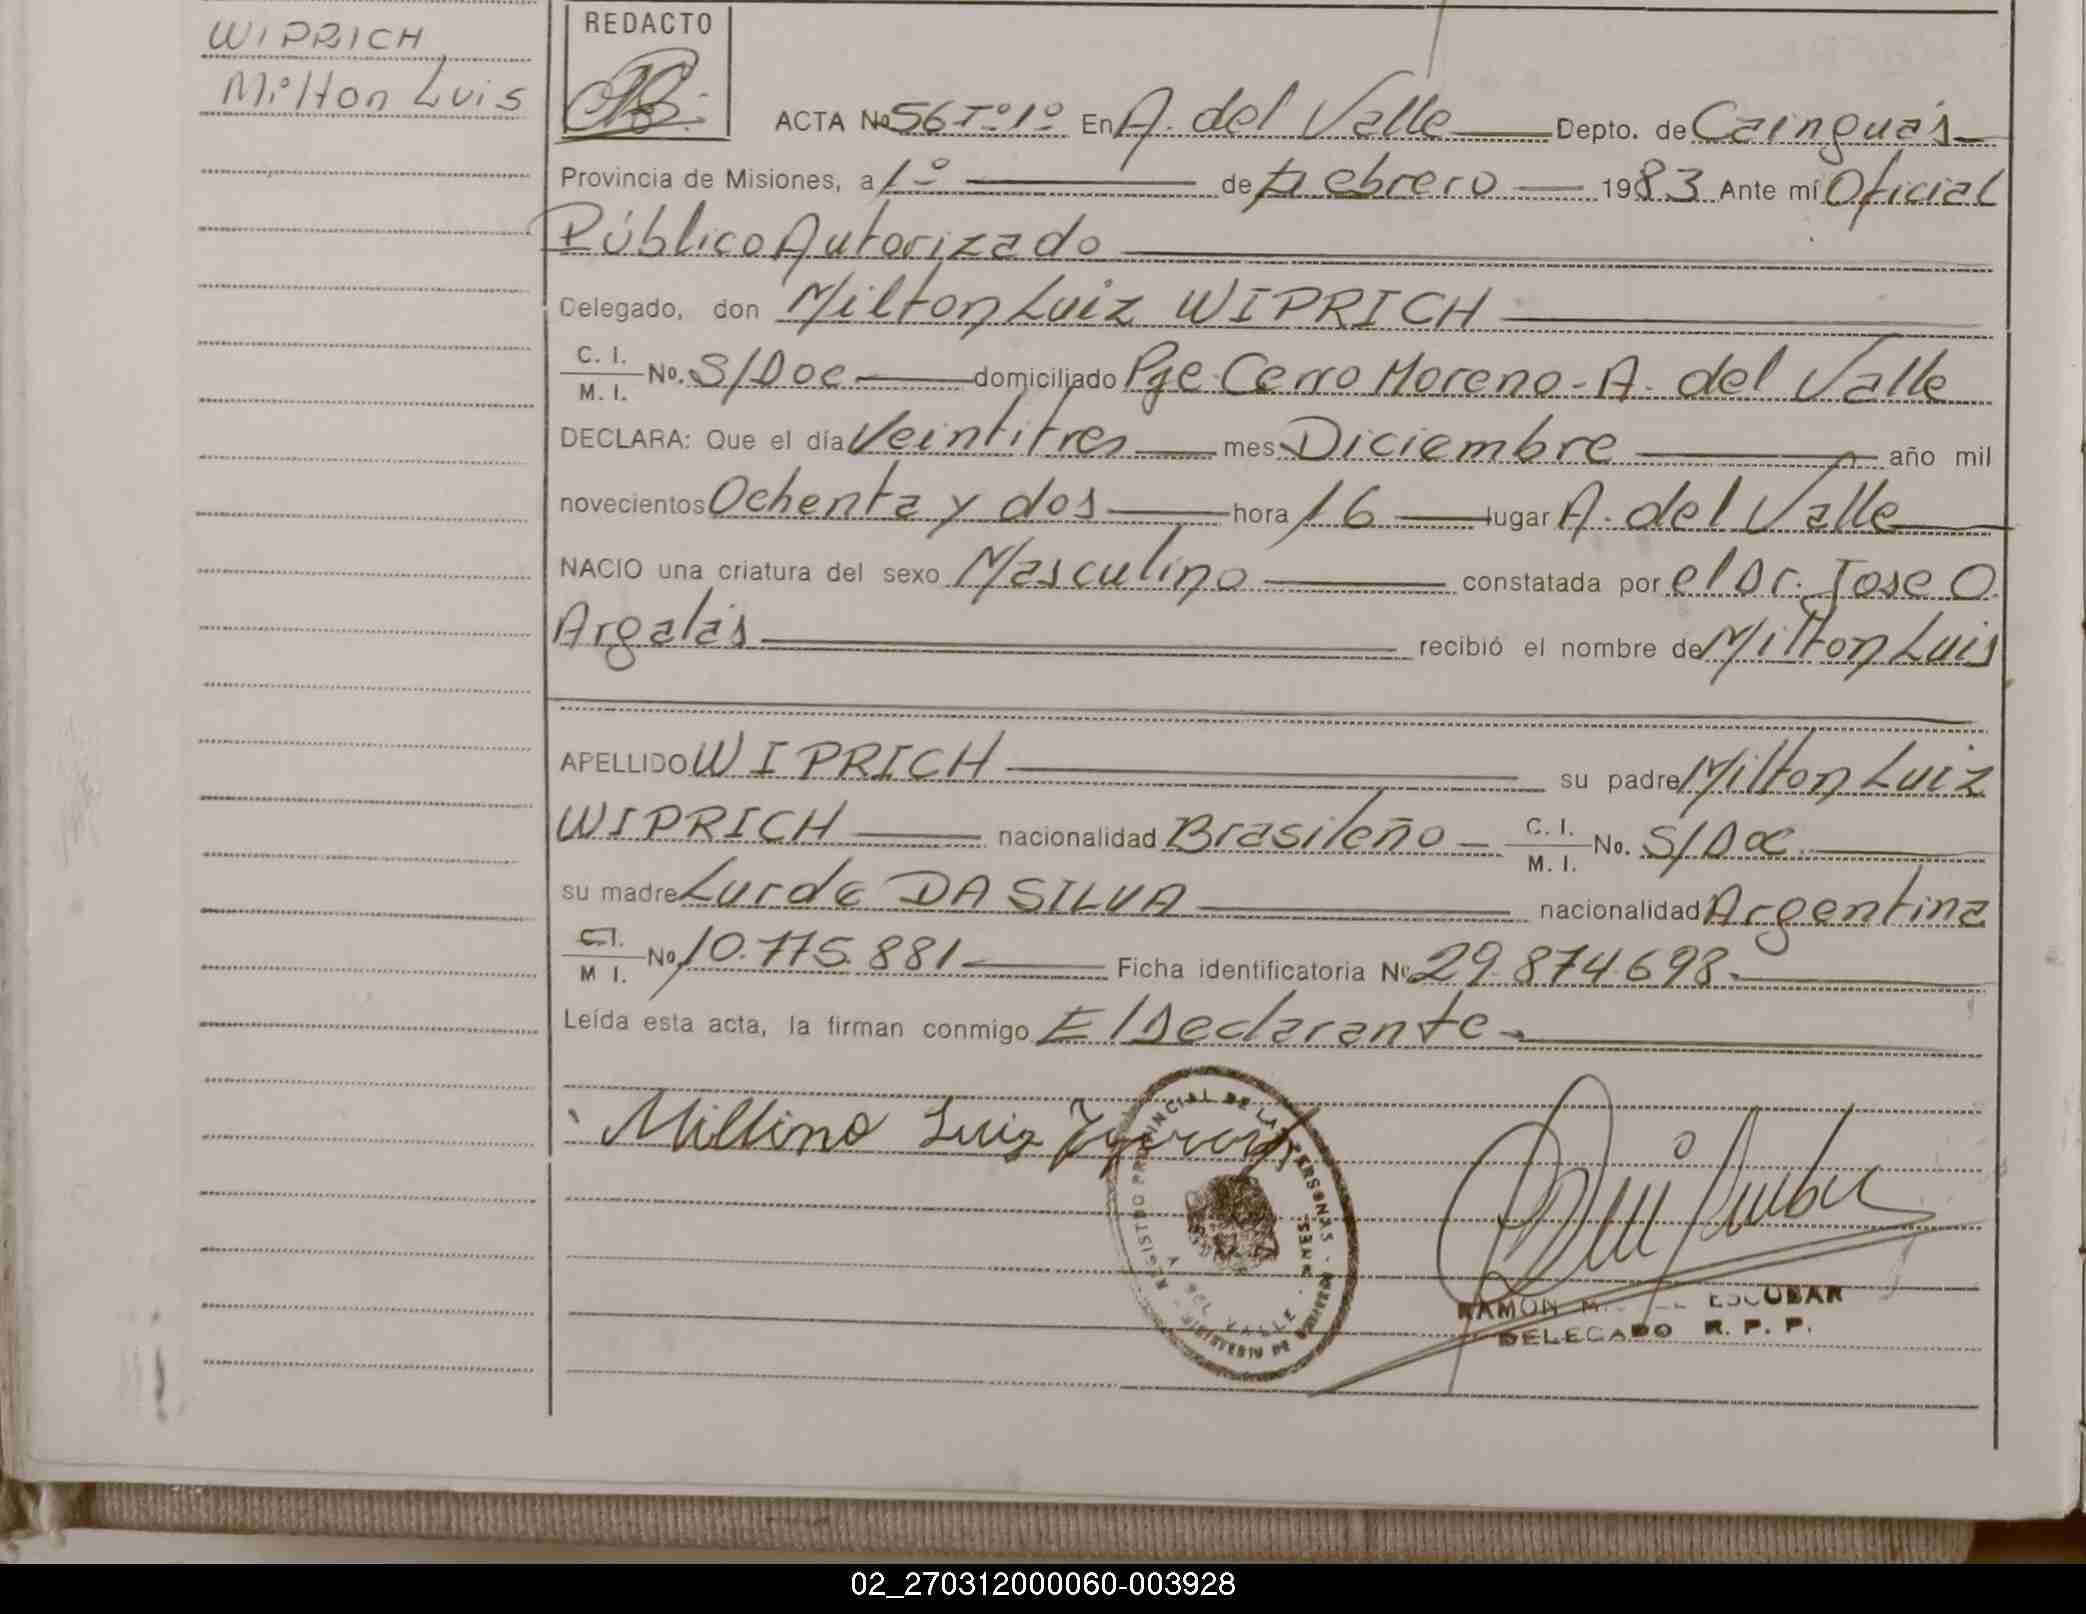 WIPRICH
Milton Luis
REDACTO
ACTA No 56 Tº 1º En A. del Valle Depto. de Cainguás
Provincia de Misiones, a 1º de Febrero 1983 Ante mí Oficial
Público Autorizado
Delegado, don Milton Luiz WIPRICH
C. I. M. I. No. S/Doc domiciliado Pje Cerro Moreno - A. del Valle
DECLARA: Que el día Veintitres mes Diciembre año mil
novecientos Ochenta y dos hora 16 lugar A. del Valle
NACIO una criatura del sexo Masculino constatada por el Dr. Jose O.
Argalás recibió el nombre de Milton Luis
APELLIDO WIPRICH su padre Milton Luiz
WIPRICH nacionalidad Brasileño C. I. M. I. No. S/Doc
su madre Lurde DA SILVA nacionalidad Argentina
C.I. M I. No 10.775.881 Ficha identificatoria No 29.874.698.
Leída esta acta, la firman conmigo El Declarante.
Luiz
REGISTRO PROVINCIAL DE LAS PERSONAS
MINISTERIO DE
DEL VALLE
RAMON ESCOBAR
DELEGADO R. P. P.
02_270312000060-003928